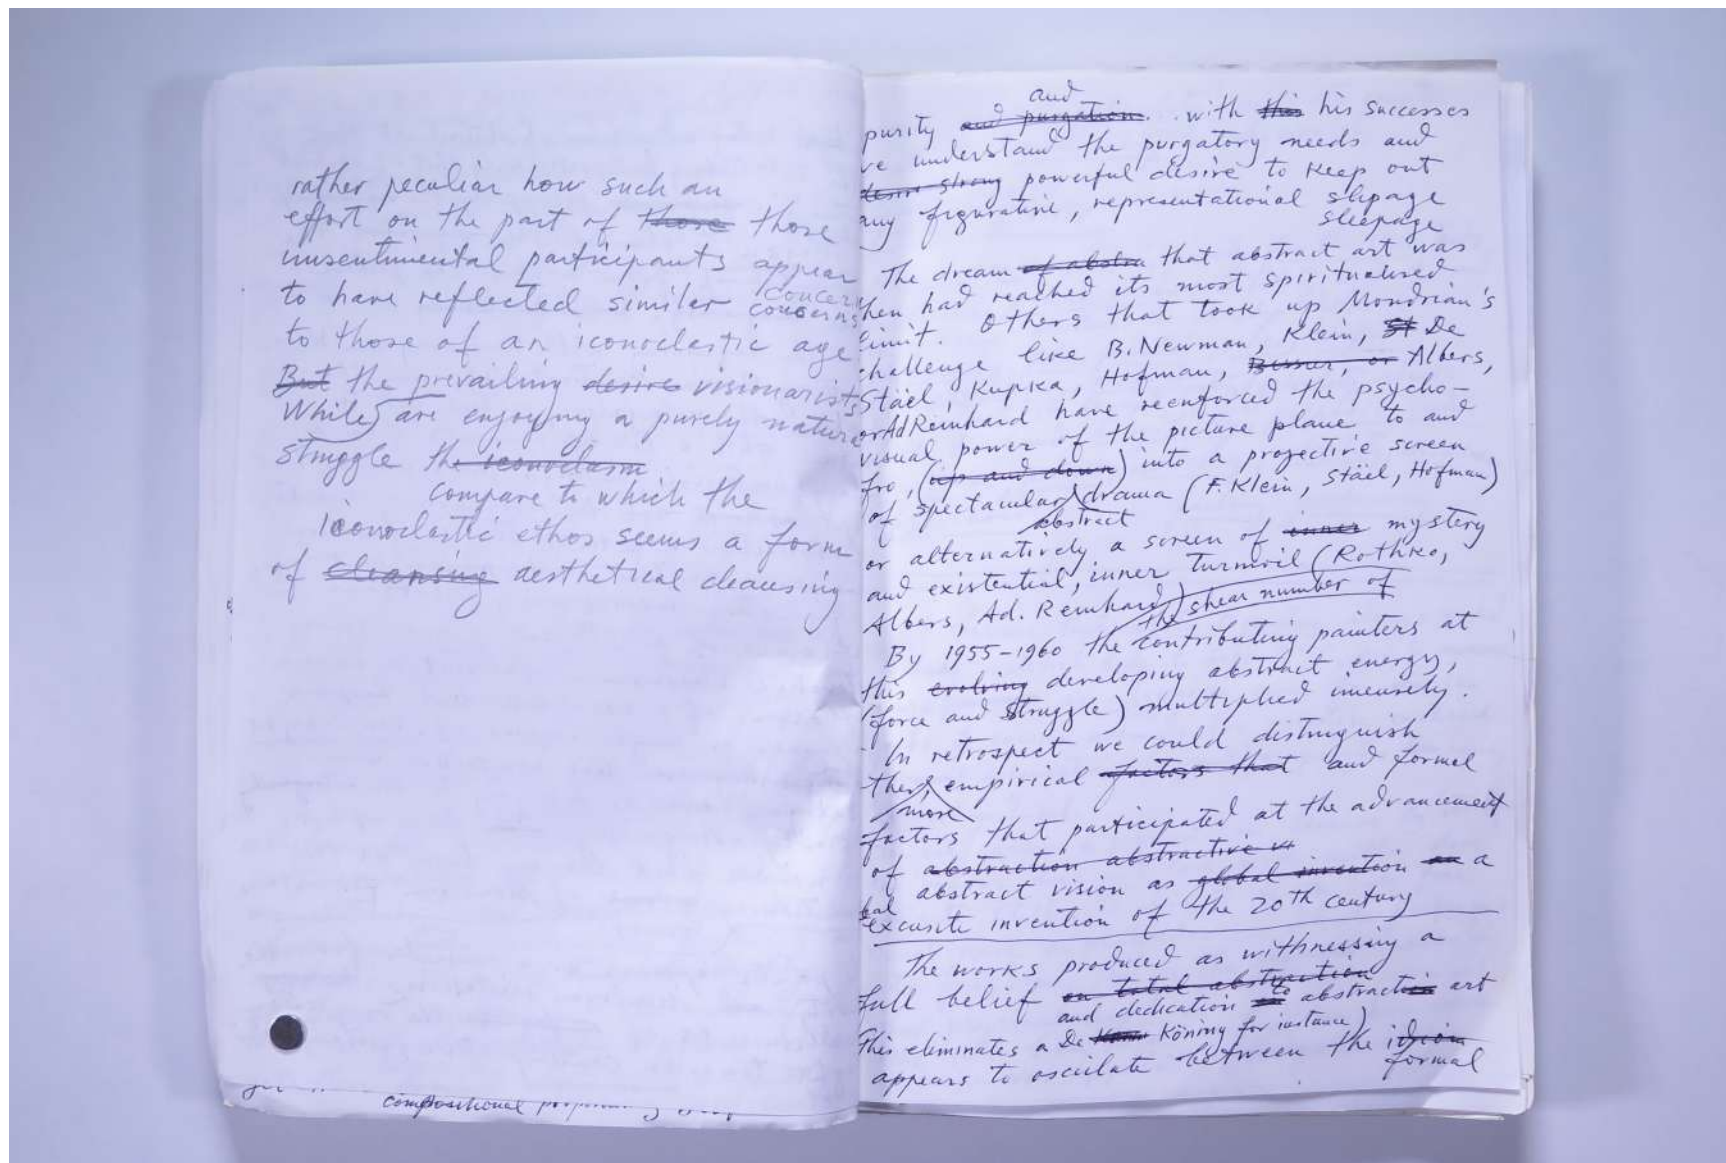 rather peculiar how such an
effort on the part of those those
unsentimental participants appear
concern
to have reflected similar concerns
to those of an iconoclastic age
But the prevailing desire visionarists
While are enjoying a purely nature
struggle the iconoclasm
compare to which the
iconoclastic ethos seems a form
of cleansing aesthetical cleansing
compositional
and
purity and purgation. with this his successes
we understand the purgatory needs and
desire strong powerful desire to keep out
any figurative, representational slipage
sleepage
The dream of abstra that abstract art was
then had reached its most spiritualised
limit. Others that took up Mondrian's
challenge like B. Newman, Klein, St De
Stäel, Kupka, Hofman, or Albers,
or Ad Reinhard have reenforced the psycho-
visual power of the picture plane to and
fro, (up and down) into a projective screen
of spectacular drama (F. Klein, Stäel, Hofman)
abstract
or alternatively a screen of inner mystery
and existential, inner turmoil (Rothko,
Albers, Ad. Reinhard)
the shear number of
By 1955-1960 the contributing painters at
this evolving developing abstract energy,
(force and struggle) multiplied imensely.
In retrospect we could distinguish
the empirical factors that and formal
more
factors that participated at the advancement
of abstraction abstractive vi
abstract vision as global invention an a
excusite invention of the 20th century
The works produced as withnessing a
full belief on total abstraction
and dedication to abstraction art
This eliminates a De Köning for instance)
appears to oscilate between the idiom
formal